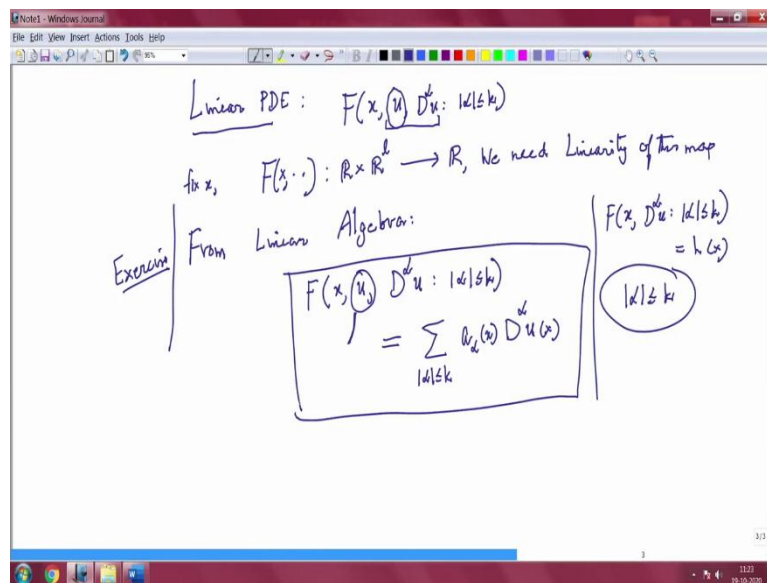 Note1 - Windows Journal
File Edit View Insert Actions Tools Help
95%
Linear PDE : F(x, u, D^α u : |α| ≤ k)
fix x, F(x, ·, ·) : ℝ × ℝ^l → ℝ, We need Linearity of this map
Exercise
From Linear Algebra:
F(x, u, D^α u : |α| ≤ k)
= ∑_{|α| ≤ k} a_α(x) D^α u(x)
F(x, D^α u : |α| ≤ k)
= h(x)
|α| ≤ k
3/3
3
11:23
19-10-2020